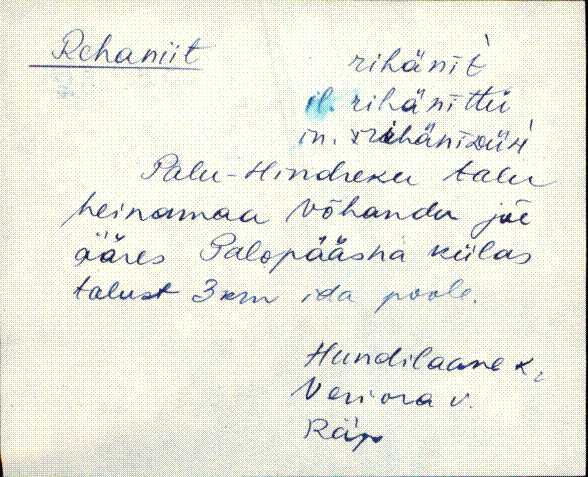 Rehaniit
rihänìt'
il. rihänìttü
in. rihänì
Palu-Hindreku talu
heinamaa Võhandu jõe
ääres Palopääsna külas
talust 3km ida poole.
Hundilaane k.
Veriora v.
Räp